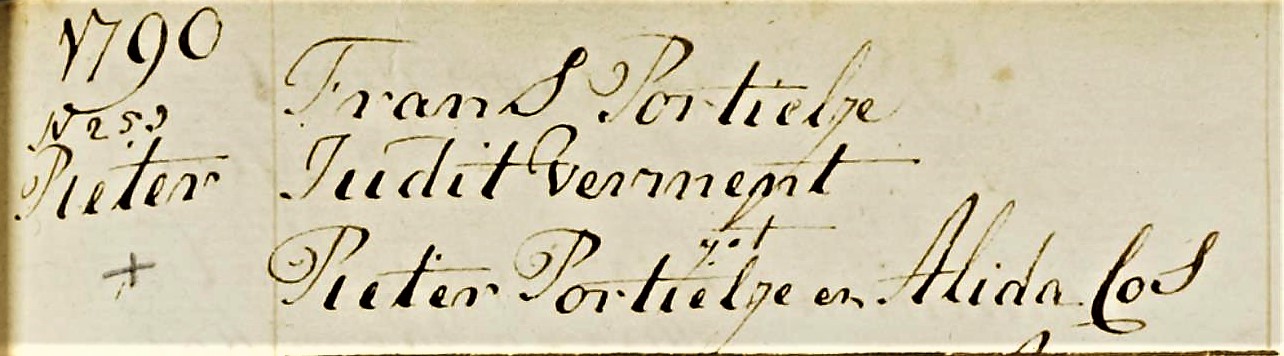 1790
N 253
Pieter
Frans Portielje
Judit Verment
get
Pieter Portielje en Alida Cos